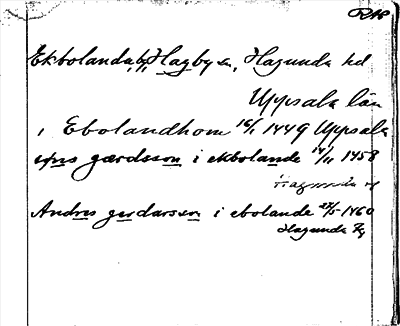 Ekbolanda, Hagby sn, Hagunda hd
Uppsala län
i Ebolandhom 16/1 1449 Uppsala
gærdsson i ekbolande 14/11 1458
Hagunda
Andres gerdarsson i ebolande 27/5 1460
Hagunda